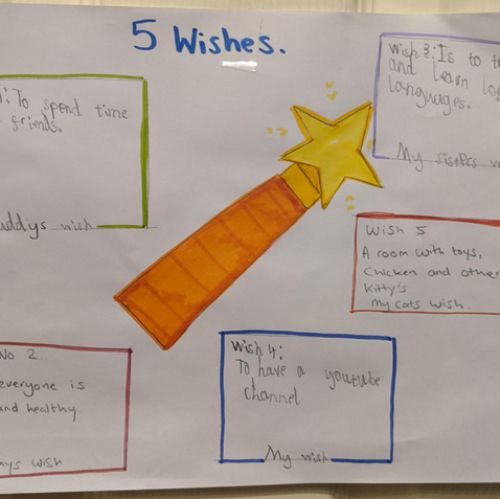 5 Wishes.
: To spend time
friends.
addys wish
Wish 3: Is to
and learn
languages.
My sisters
Wish 5
A room with toys,
Chicken and other
Kitty's
my cats wish.
No 2.
everyone is
and healthy.
wish
Wish 4:
To have a youtube
channel
My wish